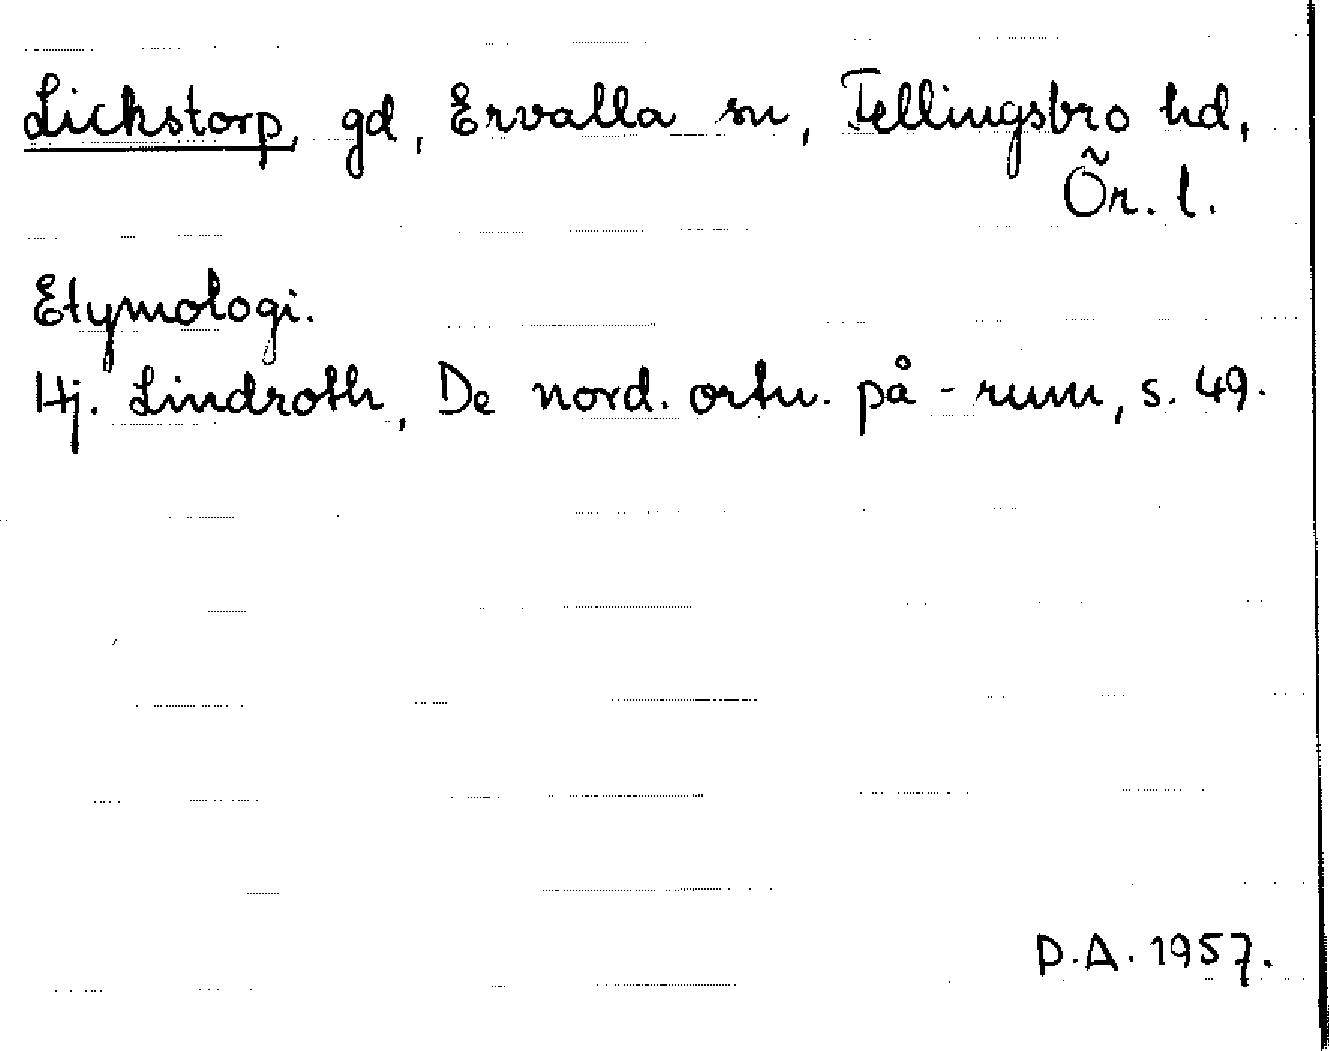 Lickstorp, gd, Ervalla sn, Fellingsbro hd,
Ör. l.
Etymologi.
Hj. Lindroth, De nord. ortn. på -rum, s. 49.
P.A. 1957.